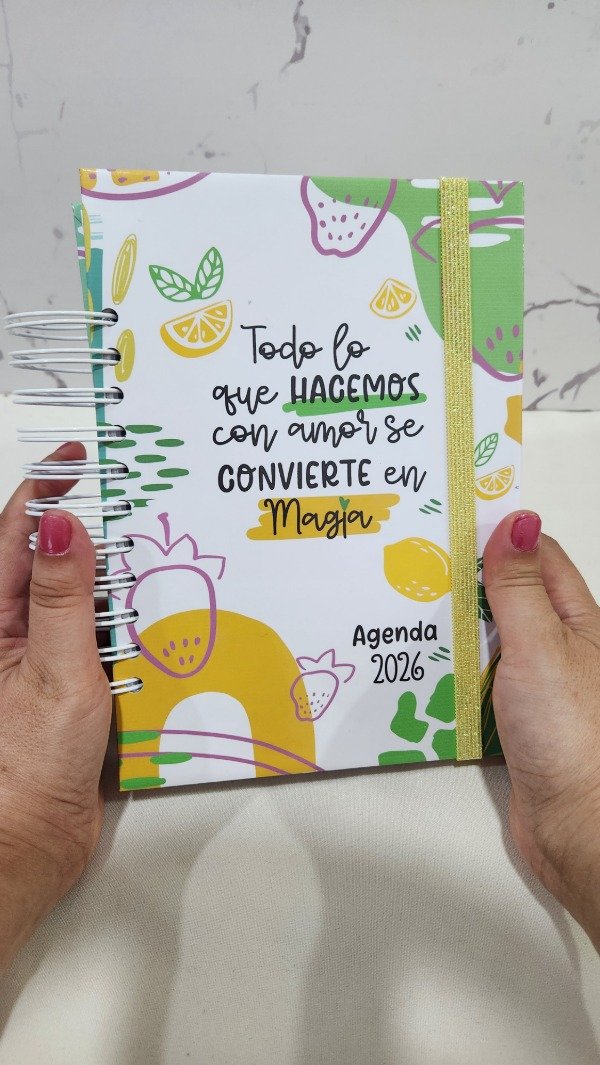 Todo lo
que HACEMOS
con amor se
CONVIERTE en
Magia
Agenda
2026